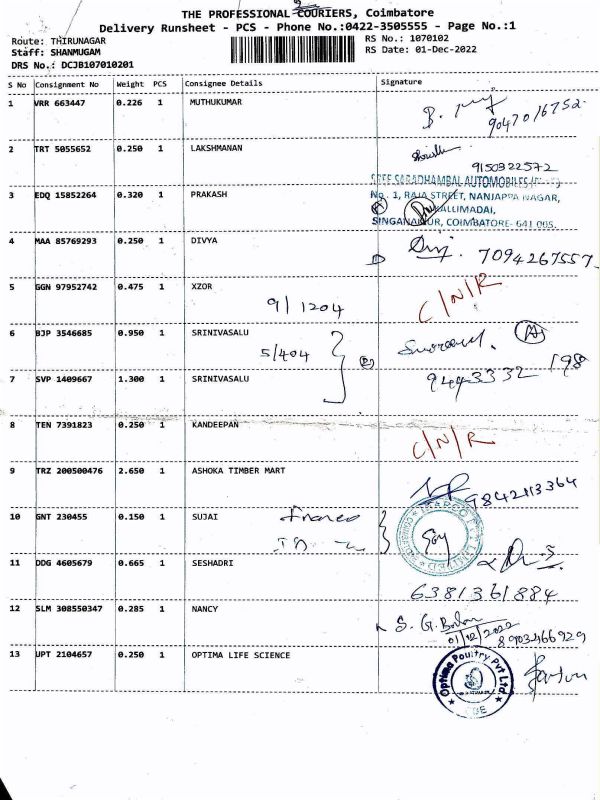 THE PROFESSIONAL COURIERS, Coimbatore
Delivery Runsheet - PCS - Phone No.:0422-3505555 - Page No.:1
Route: THIRUNAGAR
RS No.: 1070102
Staff: SHANMUGAM
RS Date: 01-Dec-2022
DRS No.: DCJB107010201
S No Consignment No Weight PCS Consignee Details Signature
1 VRR 663447 0.226 1 MUTHUKUMAR
9047016752
2 TRT 5055652 0.250 1 LAKSHMANAN
9150322572
SREE SARADHAMBAL AUTOMOBILES
3 EDQ 15852264 0.320 1 PRAKASH
No. 1, RAJA STREET, NANJAPPA NAGAR,
KALLIMADAI,
SINGANALLUR, COIMBATORE- 641 005.
4 MAA 85769293 0.250 1 DIVYA
7094267557
5 GGN 97952742 0.475 1 XZOR
9/1204
C/N/R
6 BJP 3546685 0.950 1 SRINIVASALU
5/404
7 SVP 1409667 1.300 1 SRINIVASALU
9443332 198
8 TEN 7391823 0.250 1 KANDEEPAN
C/N/R
9 TRZ 200500476 2.650 1 ASHOKA TIMBER MART
9842113364
10 GNT 230455 0.150 1 SUJAI
11 DDG 4605679 0.665 1 SESHADRI
6381361884
12 SLM 308550347 0.285 1 NANCY
S. G.
01/12/2022
8903466929
13 UPT 2104657 0.250 1 OPTIMA LIFE SCIENCE
Optima Poultry Pvt Ltd.
CBE